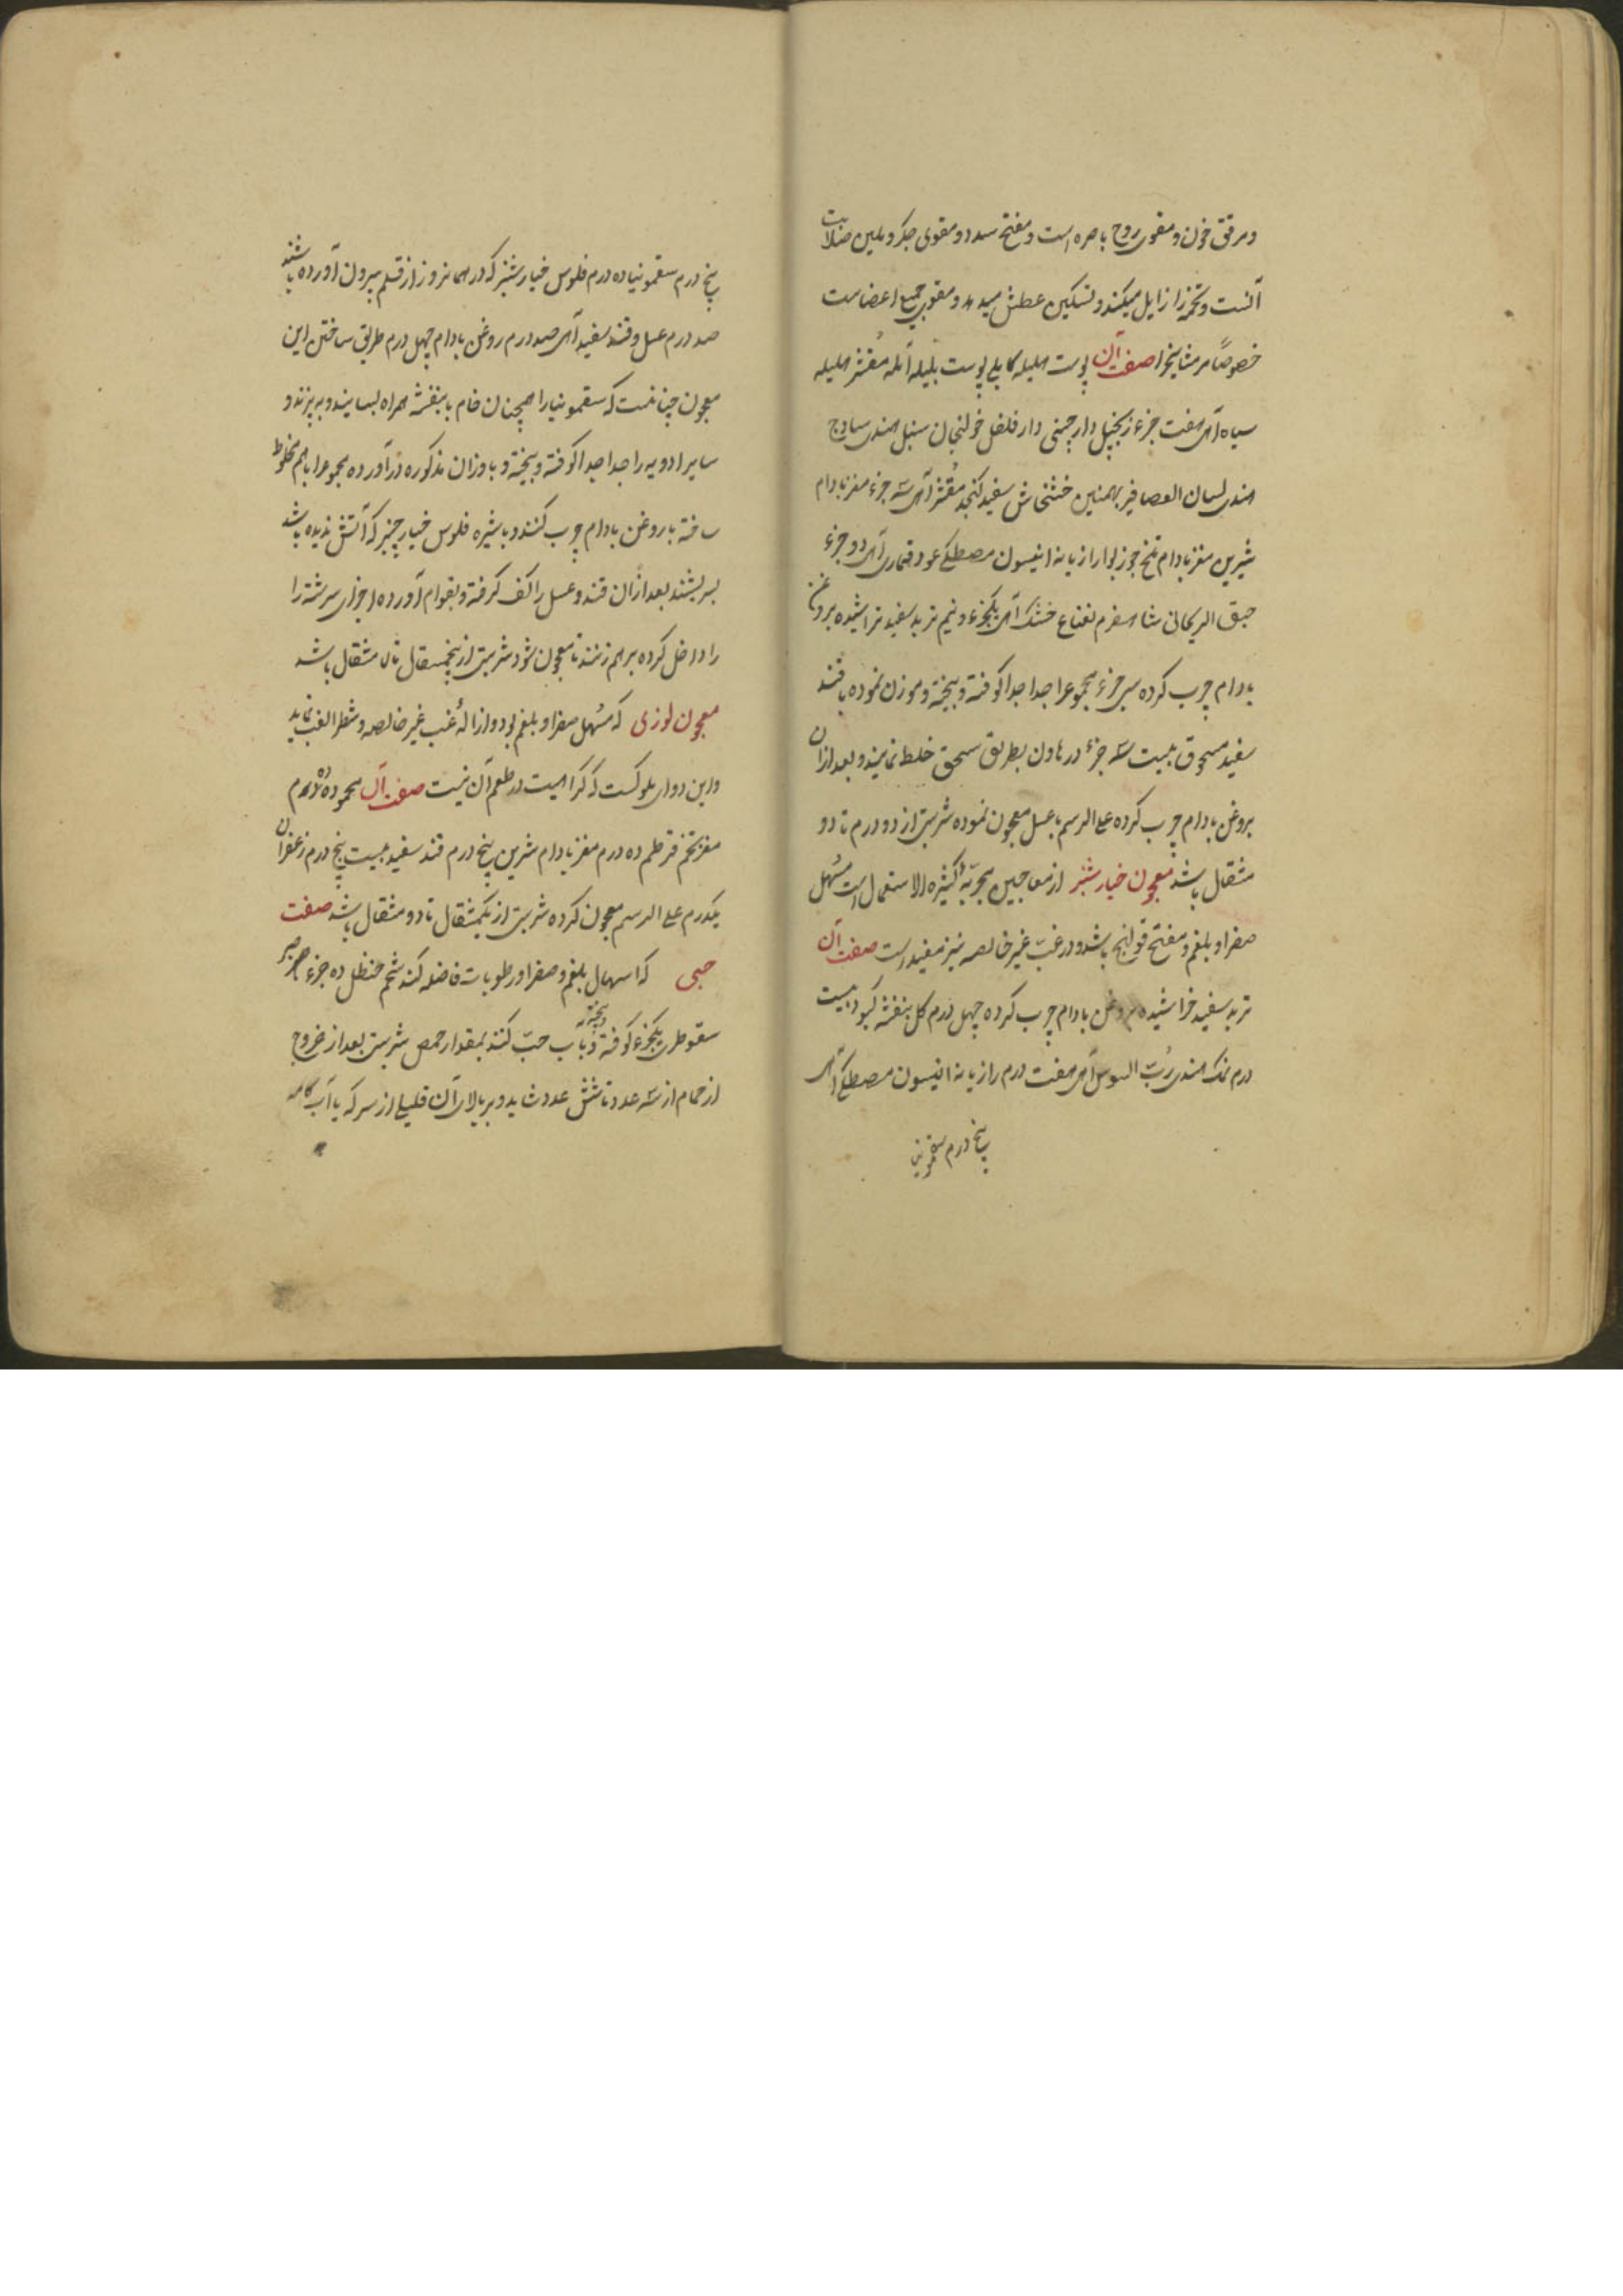 و مرقق خون و مقوی روح باصره است و مفتح سدد و مقوی جکر و ملین صلابت
آنست و تخمه را زایل میکند و تسکین عطش میدهد و مقوی جمیع اعضاست
خصوصاً مر مشایخ را صفت آن پوست هلیله کابلی پوست بلیله آمله مُقشر هلیله
سیاه ازهر هفت جزء زنجبیل دارچینی دار فلفل خولنجان سنبل هندی ساذج
هندی لسان العصافیر بهمنین خشخاش سفید کنجد مُقشر ازهر سه جزء مغز بادام
شیرین مغز بادام تلخ جوز بوا رازیانه انیسون مصطکی عود قماری ازهر دو جزء
حبق الریحانی شاهسفرم نعناع خشک ازهر یکجزء و نیم تربد سفید تراشیده بروغن
بادام چرب کرده سی جزء مجموع را جدا جدا کوفته و بیخته و موزن نموده با قند
سفید مسحوق بیست سه جزء در هاون بطریق سحق خلط نمایند و بعد ازان
بروغن بادام چرب کرده علی الرسم با عسل معجون نموده شربتی از دو درم تا دو
مثقال باشد معجون خیارشنبر از معاجین مجربهٔ کثیره الاستعمال است مُسهل
صفرا و بلغم و مفتح قولنج باشد و در غبّ غیر خالصه نیز مفید است صفت آن
تربد سفید خراشیده بروغن بادام چرب کرده چهل درم کل بنفشه کبود بیست
درم نمک هندی رُبّ السوس ازهر هفت درم رازیانه انیسون مصطکی ازهر
پنج درم سقمونیا
پنج درم سقمونیا ده درم فلوس خیارشنبر که در همانروز از قلم بیرون آورده باشند
صد درم عسل و قند سفید ازهر صد درم روغن بادام چهل درم طریق ساختن این
معجون چنانست که سقمونیا را همچنان خام با بنفشه همراه بسایند و به پزند و
سایر ادویه را جدا جدا کوفته و بیخته و باوزان مذکوره درآورده مجموع را باهم مخلوط
ساخته با روغن بادام چرب کنند و با شیره فلوس خیارچنبر که آتش ندیده باشد
بسریشند بعد ازان قند و عسل را کف کرفته و بقوام آورده اجزای سرشته را
را داخل کرده برهم زنند تا معجون شود شربتی از پنجمثقال تا مثقال باشد
معجون لوزی که مُسهل صفرا و بلغم بود و ازالهٔ غب غیر خالصه و شطر الغب نماید
و این دوای ملوکست که کراهیت در طعم آن نیست صفت آن محموده ده درم
مغز تخم قرطم ده درم مغز بادام شرین پنج درم قند سفید بیست پنج درم زعفران
یکدرم علی الرسم معجون کرده شربتی از یکمثقال تا دو مثقال باشد صفت
حبی که اسهال بلغم و صفرا و رطوبات فاضله کند شحم حنظل ده جزء صبر
سقوطری یکجزء کوفته و بیخته بآب حبّ کنند بمقدار حمص شربتی بعد از خروج
از حمام از سه عدد تا شش عدد شاید و بر بالای آن قلیلی از سرکه یا آب کامه